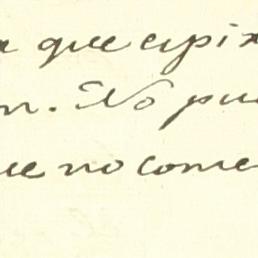 a que espi
n. No pu
ue no come